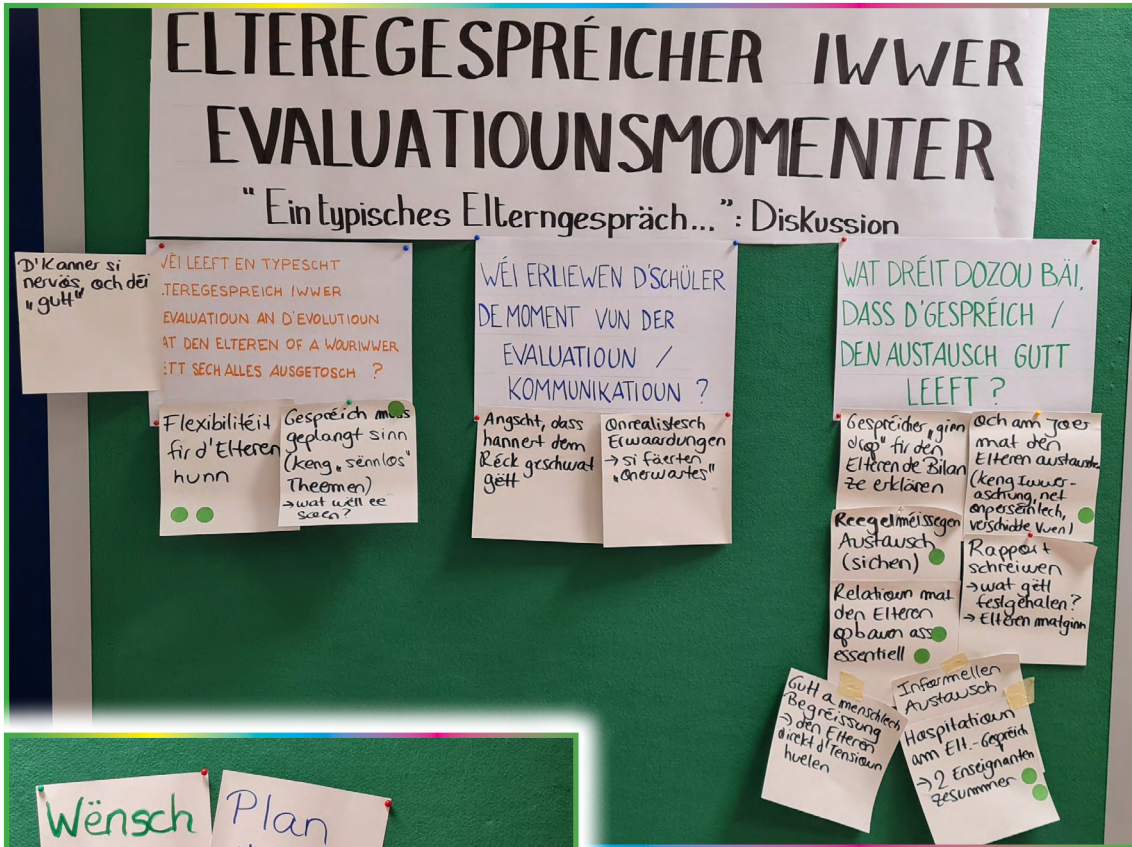 ELTEREGESPRÉICHER IWWER
EVALUATIOUNSMOMENTER
"Ein typisches Elterngespräch...": Diskussion
D'Kanner si
nervös, och déi
"gutt"
WÉI LEEFT EN TYPESCHT
TEREGESPREICH IWWER
EVALUATIOUN AN D'EVOLUTIOUN
AT DEN ELTEREN OF A WOURIWWER
ETT SECH ALLES AUSGETOSCH ?
Flexibilitéit
fir d'Elteren
hunn
Gespréich muss
geplangt sinn
(keng „sënnlos"
Theemen)
→ wat wëll ee
soen?
WÉI ERLIEWEN D'SCHÜLER
DE MOMENT VUN DER
EVALUATIOUN /
KOMMUNIKATIOUN ?
Angscht, dass
hannert dem
Réck geschwat
gëtt
Onrealistesch
Erwaardungen
→ si fäerten
„Onerwartes"
WAT DRÉIT DOZOU BÄI,
DASS D'GESPRÉICH /
DEN AUSTAUSCH GUTT
LEEFT ?
Gespréicher „ginn
drop" fir den
Elteren de Bilan
ze erklären
Och am Joer
mat den
Elteren austausche
(keng Iwwer-
aschung, net
onperséinlech,
verschidde Vuen)
Reegelméissegen
Austausch
(sichen)
Relatioun mat
den Elteren
opbauen ass
essentiell
Rapport
schreiwen
→ wat gëtt
festgehalen?
→ Elteren matginn
Gutt a menschlech
Begréissung
→ den Elteren
direkt d'Tensioun
huelen
Informellen
Austausch
Hospitatioun
am Elt.-Gespréich
→ 2 Enseignanten
zesummen
Wënsch
Plan